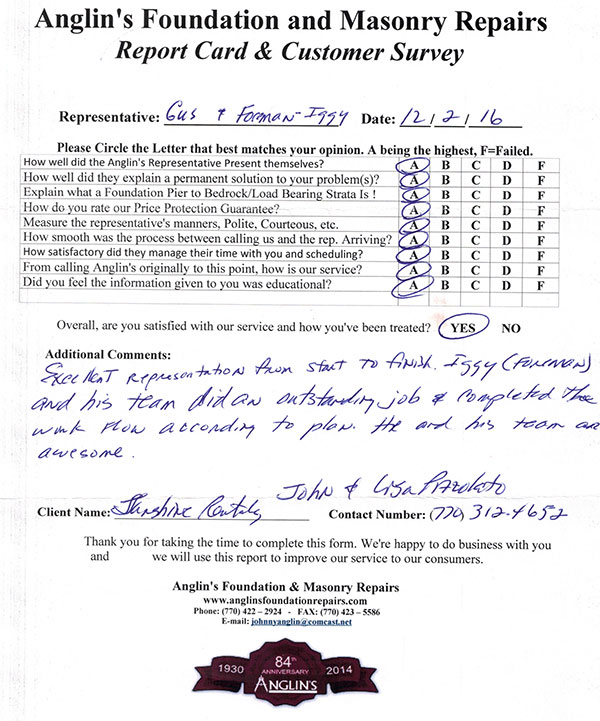 Anglin's Foundation and Masonry Repairs
Report Card & Customer Survey
Representative: Gus & Forman-Iggy Date: 12/2/16
Please Circle the Letter that best matches your opinion. A being the highest, F=Failed.
How well did the Anglin's Representative Present themselves? A B C D F
How well did they explain a permanent solution to your problem(s)? A B C D F
Explain what a Foundation Pier to Bedrock/Load Bearing Strata Is ! A B C D F
How do you rate our Price Protection Guarantee? A B C D F
Measure the representative's manners, Polite, Courteous, etc. A B C D F
How smooth was the process between calling us and the rep. Arriving? A B C D F
How satisfactory did they manage their time with you and scheduling? A B C D F
From calling Anglin's originally to this point, how is our service? A B C D F
Did you feel the information given to you was educational? A B C D F
Overall, are you satisfied with our service and how you've been treated? YES NO
Additional Comments:
Excellent representation from start to finish. Iggy (Foreman)
and his team did an outstanding job & completed the
work flow according to plan. He and his team are
awesome.
John & Lisa
Client Name: Sunshine Contact Number: (770) 312-4652
Thank you for taking the time to complete this form. We're happy to do business with you
and we will use this report to improve our service to our consumers.
Anglin's Foundation & Masonry Repairs
www.anglinsfoundationrepairs.com
Phone: (770) 422 – 2924 - FAX: (770) 423 – 5586
E-mail: johnnyanglin@comcast.net
1930 84th ANNIVERSARY 2014
ANGLIN'S